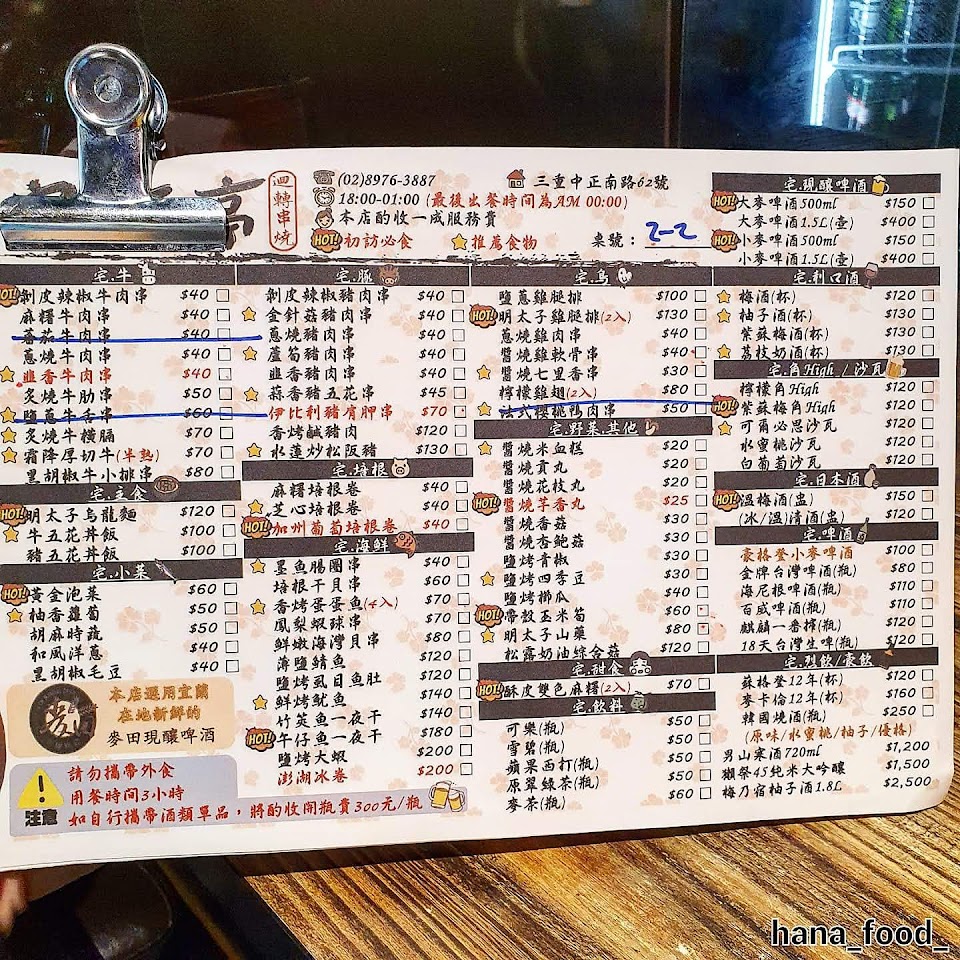 亭
迴轉串燒
(02)8976-3887
三重中正南路62號
18:00-01:00 (最後出餐時間為AM 00:00)
本店酌收一成服務費
HOT! 初訪必食
推薦食物
桌號：2-2
宅.牛
HOT! 剝皮辣椒牛肉串 $40
麻糬牛肉串 $40
蕃茄牛肉串 $40
蔥燒牛肉串 $40
韭香牛肉串 $40
炙燒牛肋串 $50
鹽蔥牛舌串 $60
炙燒牛橫膈 $70
霜降厚切牛(半熟) $70
黑胡椒牛小排串 $80
宅.主食
HOT! 明太子烏龍麵 $120
牛五花丼飯 $100
豬五花丼飯 $100
宅.小菜
HOT! 黃金泡菜 $60
柚香蘿蔔 $50
胡麻時蔬 $50
和風洋蔥 $40
黑胡椒毛豆 $40
本店選用宜蘭
在地新鮮的
麥田現釀啤酒
注意
請勿攜帶外食
用餐時間3小時
如自行攜帶酒類單品，將酌收開瓶費300元/瓶
宅.豚
剝皮辣椒豬肉串 $40
金針菇豬肉串 $40
蔥燒豬肉串 $40
蘆筍豬肉串 $40
韭香豬肉串 $40
蒜香豬五花串 $45
伊比利豬肩胛串 $70
香烤鹹豬肉 $120
水蓮炒松阪豬 $130
宅.培根
麻糬培根卷 $40
芝心培根卷 $40
HOT! 加州葡萄培根卷 $40
宅.海鮮
墨魚腸圈串 $40
培根干貝串 $60
香烤蛋蛋魚(4入) $70
鳳梨蝦球串 $70
鮮嫩海灣貝串 $80
薄鹽鯖魚 $120
鹽烤虱目魚肚 $120
鮮烤魷魚 $140
竹筴魚一夜干 $140
HOT! 午仔魚一夜干 $180
鹽烤大蝦 $200
澎湖冰卷 $200
宅.鳥
鹽蔥雞腿排 $100
HOT! 明太子雞腿排(2入) $130
蔥燒雞肉串 $40
醬燒雞軟骨串 $40
醬燒七里香串 $30
檸檬雞翅(2入) $80
法式櫻桃鴨肉串 $50
宅.野菜.其他
醬燒米血糕 $20
醬燒貢丸 $20
醬燒花枝丸 $20
HOT! 醬燒芋香丸 $25
醬燒香菇 $30
醬燒杏鮑菇 $30
鹽烤青椒 $30
鹽烤四季豆 $30
鹽烤櫛瓜 $40
HOT! 帶殼玉米筍 $60
明太子山藥 $80
松露奶油綜合菇 $120
宅.甜食
HOT! 酥皮雙色麻糬(2入) $70
宅.飲料
可樂(瓶) $50
雪碧(瓶) $50
蘋果西打(瓶) $50
原翠綠茶(瓶) $50
麥茶(瓶) $60
宅.現釀啤酒
HOT! 大麥啤酒500ml $150
大麥啤酒1.5L(壺) $400
HOT! 小麥啤酒500ml $150
小麥啤酒1.5L(壺) $400
宅.利口酒
梅酒(杯) $120
柚子酒(杯) $130
紫蘇梅酒(杯) $130
荔枝奶酒(杯) $130
宅.角High / 沙瓦
檸檬角High $120
HOT! 紫蘇梅角High $120
可爾必思沙瓦 $120
水蜜桃沙瓦 $120
白葡萄沙瓦 $120
宅.日本酒
HOT! 溫梅酒(盅) $150
(冰/溫)清酒(盅) $120
宅.啤酒
豪格登小麥啤酒 $100
金牌台灣啤酒(瓶) $80
海尼根啤酒(瓶) $110
百威啤酒(瓶) $110
麒麟一番搾(瓶) $120
18天台灣生啤(瓶) $120
宅.烈飲/豪飲
蘇格登12年(杯) $120
麥卡倫12年(杯) $160
韓國燒酒(瓶) $250
(原味/水蜜桃/柚子/優格)
男山寒酒720ml $1,200
獺祭45純米大吟釀 $1,500
梅乃宿柚子酒1.8L $2,500
hana_food_